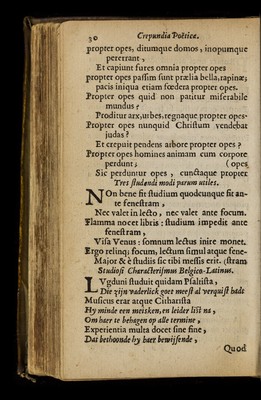 30 Crepundia Poëtica.
propter opes, ditumque domos, inopumque
petentrant,
Et capiunt fures omnia propter opes
propter opes passim sunt prælia bella, rapinæ;
pacis iniqua etiam fœdera propter opes.
Propter opes quid non patitur miserabile
mundus?
Proditur arx, urbes, regnaque propter opes.
Propter opes nunquid Christum vendebat
judas?
Et crepuit pendens arbore propter opes?
Propter opes homines animam cum corpore
perdunt; (opes
Sic perduntur opes, cunctaque propter
Tres studendi modi parum utiles.
NOn bene fit studium quodcunque sit an-
te fenestram,
Nec valet in lecto, nec valet ante focum.
Flamma nocet libris: studium impedit ante
fenestram,
Visa Venus: somnum lectus inire monet.
Ergo relinq; focum, lectum simul atque fene-
Major & è studiis sic tibi messis erit. (stram
Studiosi Characterismus Belgico-Latinus.
LVgduni studuit quidam Psalista,
Die zijn vaderlick goet meest al verquist hadt
Musicus erat atque Citharista
Hy minde een meisken, en leider list na,
Om haer te behagen op alle termine,
Experientia multa docet sine fine,
Dat bethoonde hy haer bewijsende,
Quod